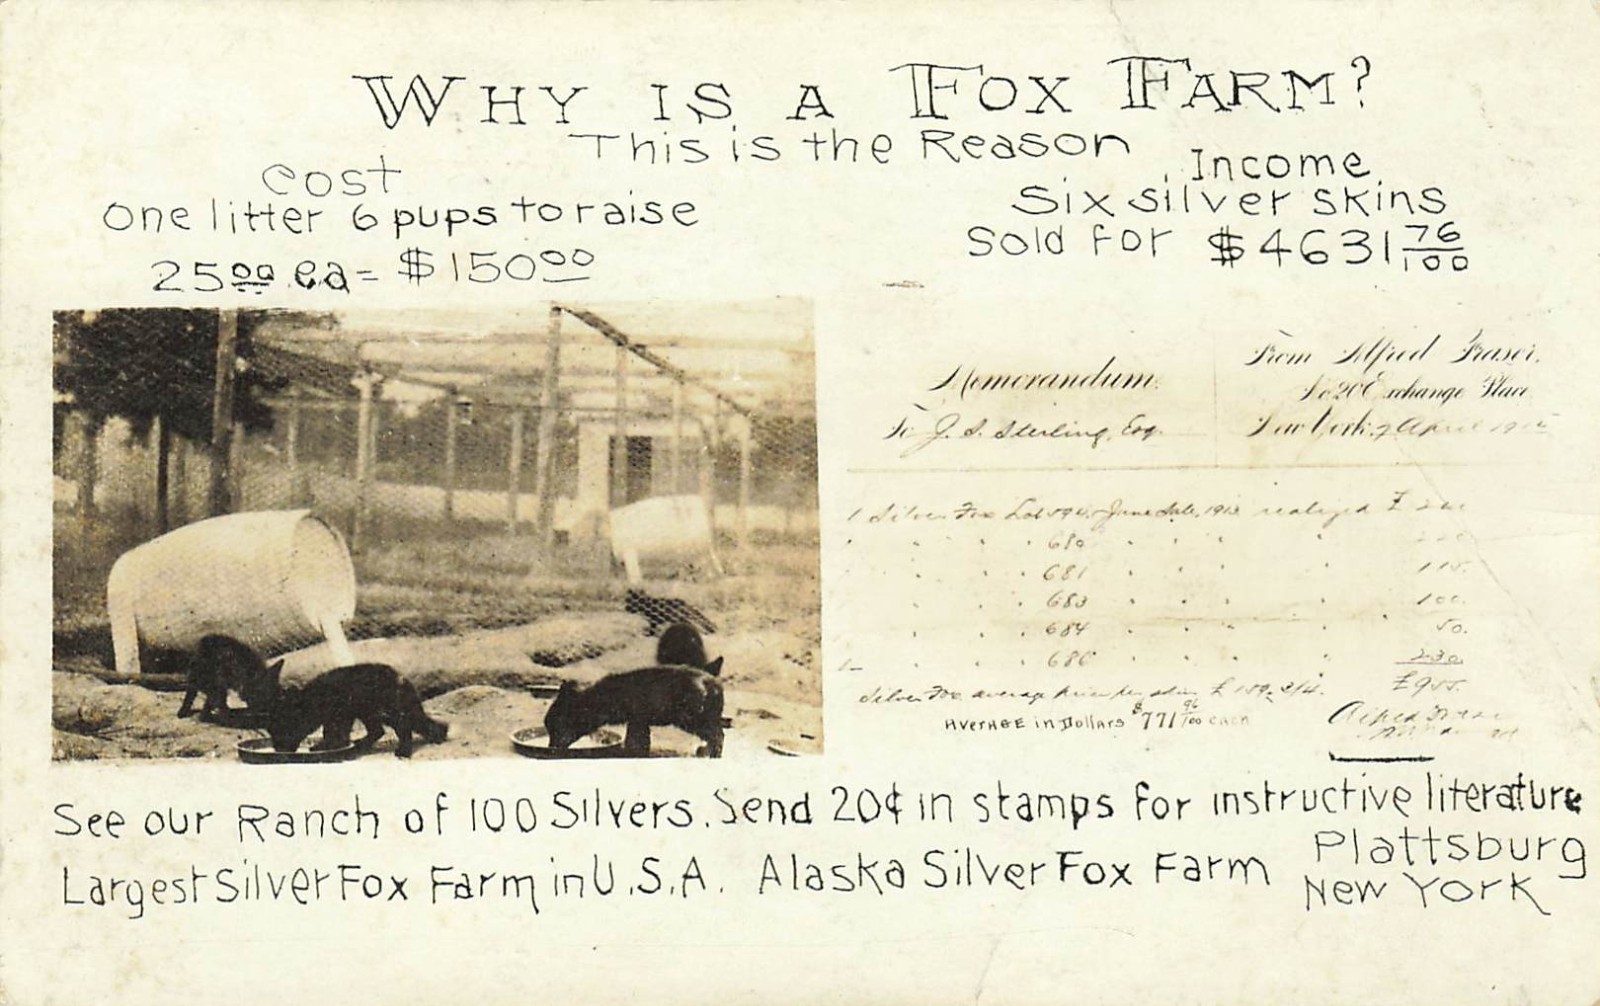 WHY IS A FOX FARM?
This is the Reason
Cost
One litter 6 pups to raise
25 00 ea = $150 00
Income
Six silver skins
Sold for $4631 76/100
Memorandum.
From Alfred Fraser,
No 20 Exchange Place
To J. S. Sterling, Esq.
New York, 9 April
1 Silver Fox Lot June Sale, 1913 realized £
" " " 680 " " " "
" " " 681 " " " " 115.
" " " 683 " " " " 100.
" " " 684 " " " " 50.
" " " 686 " " " " 230.
£955.
Silver Fox average price per skin £159. 3/4.
AVERAGE in Dollars $771 96/100 each
Alfred Fraser
See our Ranch of 100 Silvers. Send 20¢ in stamps for instructive literature
Largest Silver Fox Farm in U.S.A. Alaska Silver Fox Farm
Plattsburg
New York